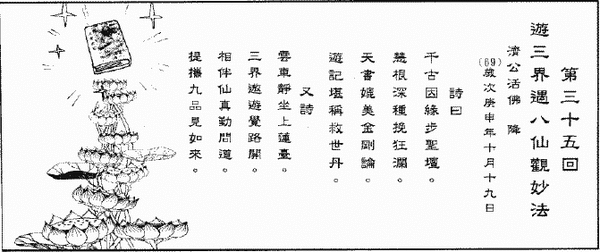 第三十五回
遊三界遇八仙觀妙法
濟公活佛 降
(69)歲次庚申年十月十九日
詩曰
千古因緣步聖壇。
慧根深種挽狂瀾。
天書媲美金剛論。
遊記堪稱救世丹。
又詩
雲車靜坐上蓮臺。
三界遨遊覺路開。
相伴仙真勤問道。
提攜九品見如來。